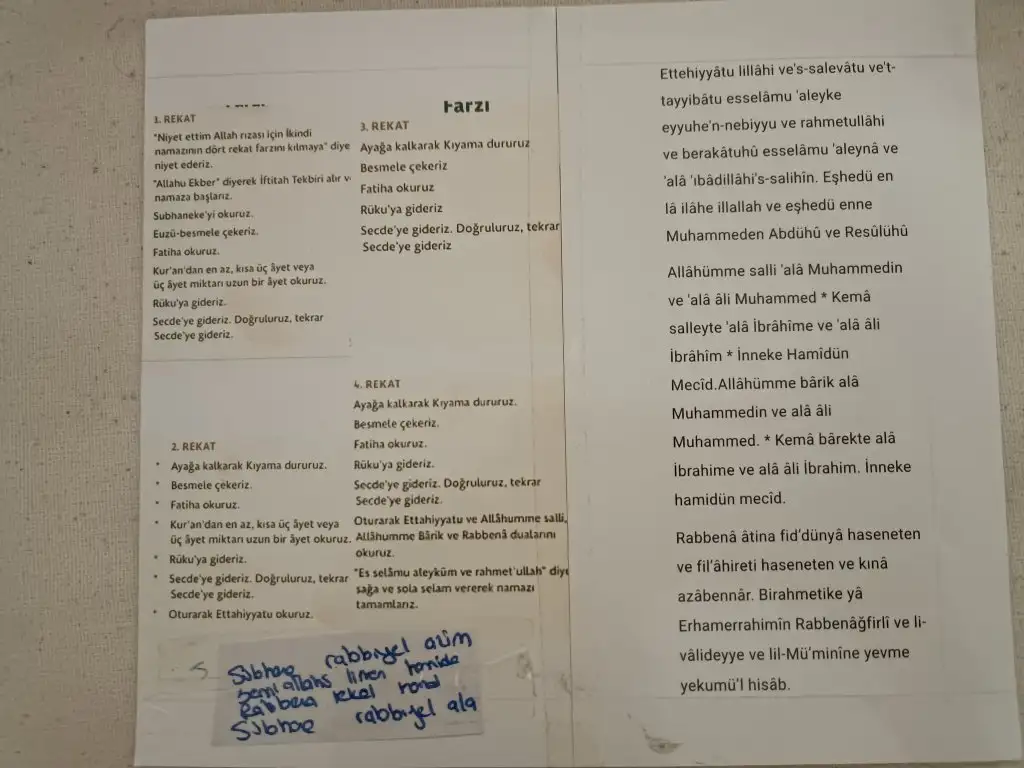 1. REKAT
"Niyet ettim Allah rızası için İkindi
namazının dört rekat farzını kılmaya" diye
niyet ederiz.
"Allahu Ekber" diyerek İftitah Tekbiri alır v
namaza başlarız.
Subhaneke'yi okuruz.
Euzü-besmele çekeriz.
Fatiha okuruz.
Kur'an'dan en az, kısa üç âyet veya
üç âyet miktarı uzun bir âyet okuruz.
Rüku'ya gideriz.
Secde'ye gideriz. Doğruluruz, tekrar
Secde'ye gideriz.
2. REKAT
* Ayağa kalkarak Kıyama dururuz.
* Besmele çekeriz.
* Fatiha okuruz.
* Kur'an'dan en az, kısa üç âyet veya
üç âyet miktarı uzun bir âyet okuruz.
* Rüku'ya gideriz.
* Secde'ye gideriz. Doğruluruz, tekrar
Secde'ye gideriz.
* Oturarak Ettahiyyatu okuruz.
Farzı
3. REKAT
Ayağa kalkarak Kıyama dururuz
Besmele çekeriz
Fatiha okuruz
Rüku'ya gideriz
Secde'ye gideriz. Doğruluruz, tekrar
Secde'ye gideriz
4. REKAT
Ayağa kalkarak Kıyama dururuz.
Besmele çekeriz.
Fatiha okuruz.
Rüku'ya gideriz.
Secde'ye gideriz. Doğruluruz, tekrar
Secde'ye gideriz.
Oturarak Ettahiyyatu ve Allâhumme salli,
Allâhumme Bârik ve Rabbenâ dualarını
okuruz.
"Es selâmu aleyküm ve rahmet'ullah" diye
sağa ve sola selam vererek namazı
tamamlarız.
Sübhane rabbiyel azim
semi allahü linen hamide
Rabbena lekel hamd
Sübhane rabbiyel ala
Ettehiyyâtu lillâhi ve's-salevâtu ve't-
tayyibâtu esselâmu 'aleyke
eyyuhe'n-nebiyyu ve rahmetullâhi
ve berakâtuhû esselâmu 'aleynâ ve
'alâ 'ıbâdillâhi's-salihîn. Eşhedü en
lâ ilâhe illallah ve eşhedü enne
Muhammeden Abdühû ve Resûlühû
Allâhümme salli 'alâ Muhammedin
ve 'alâ âli Muhammed * Kemâ
salleyte 'alâ İbrâhîme ve 'alâ âli
İbrâhîm * İnneke Hamîdün
Mecîd.Allâhümme bârik alâ
Muhammedin ve alâ âli
Muhammed. * Kemâ bârekte alâ
İbrahime ve alâ âli İbrahim. İnneke
hamidün mecîd.
Rabbenâ âtina fid'dünyâ haseneten
ve fil'âhireti haseneten ve kınâ
azâbennâr. Birahmetike yâ
Erhamerrahimîn Rabbenâğfirlî ve li-
vâlideyye ve lil-Mü'minîne yevme
yekumü'l hisâb.